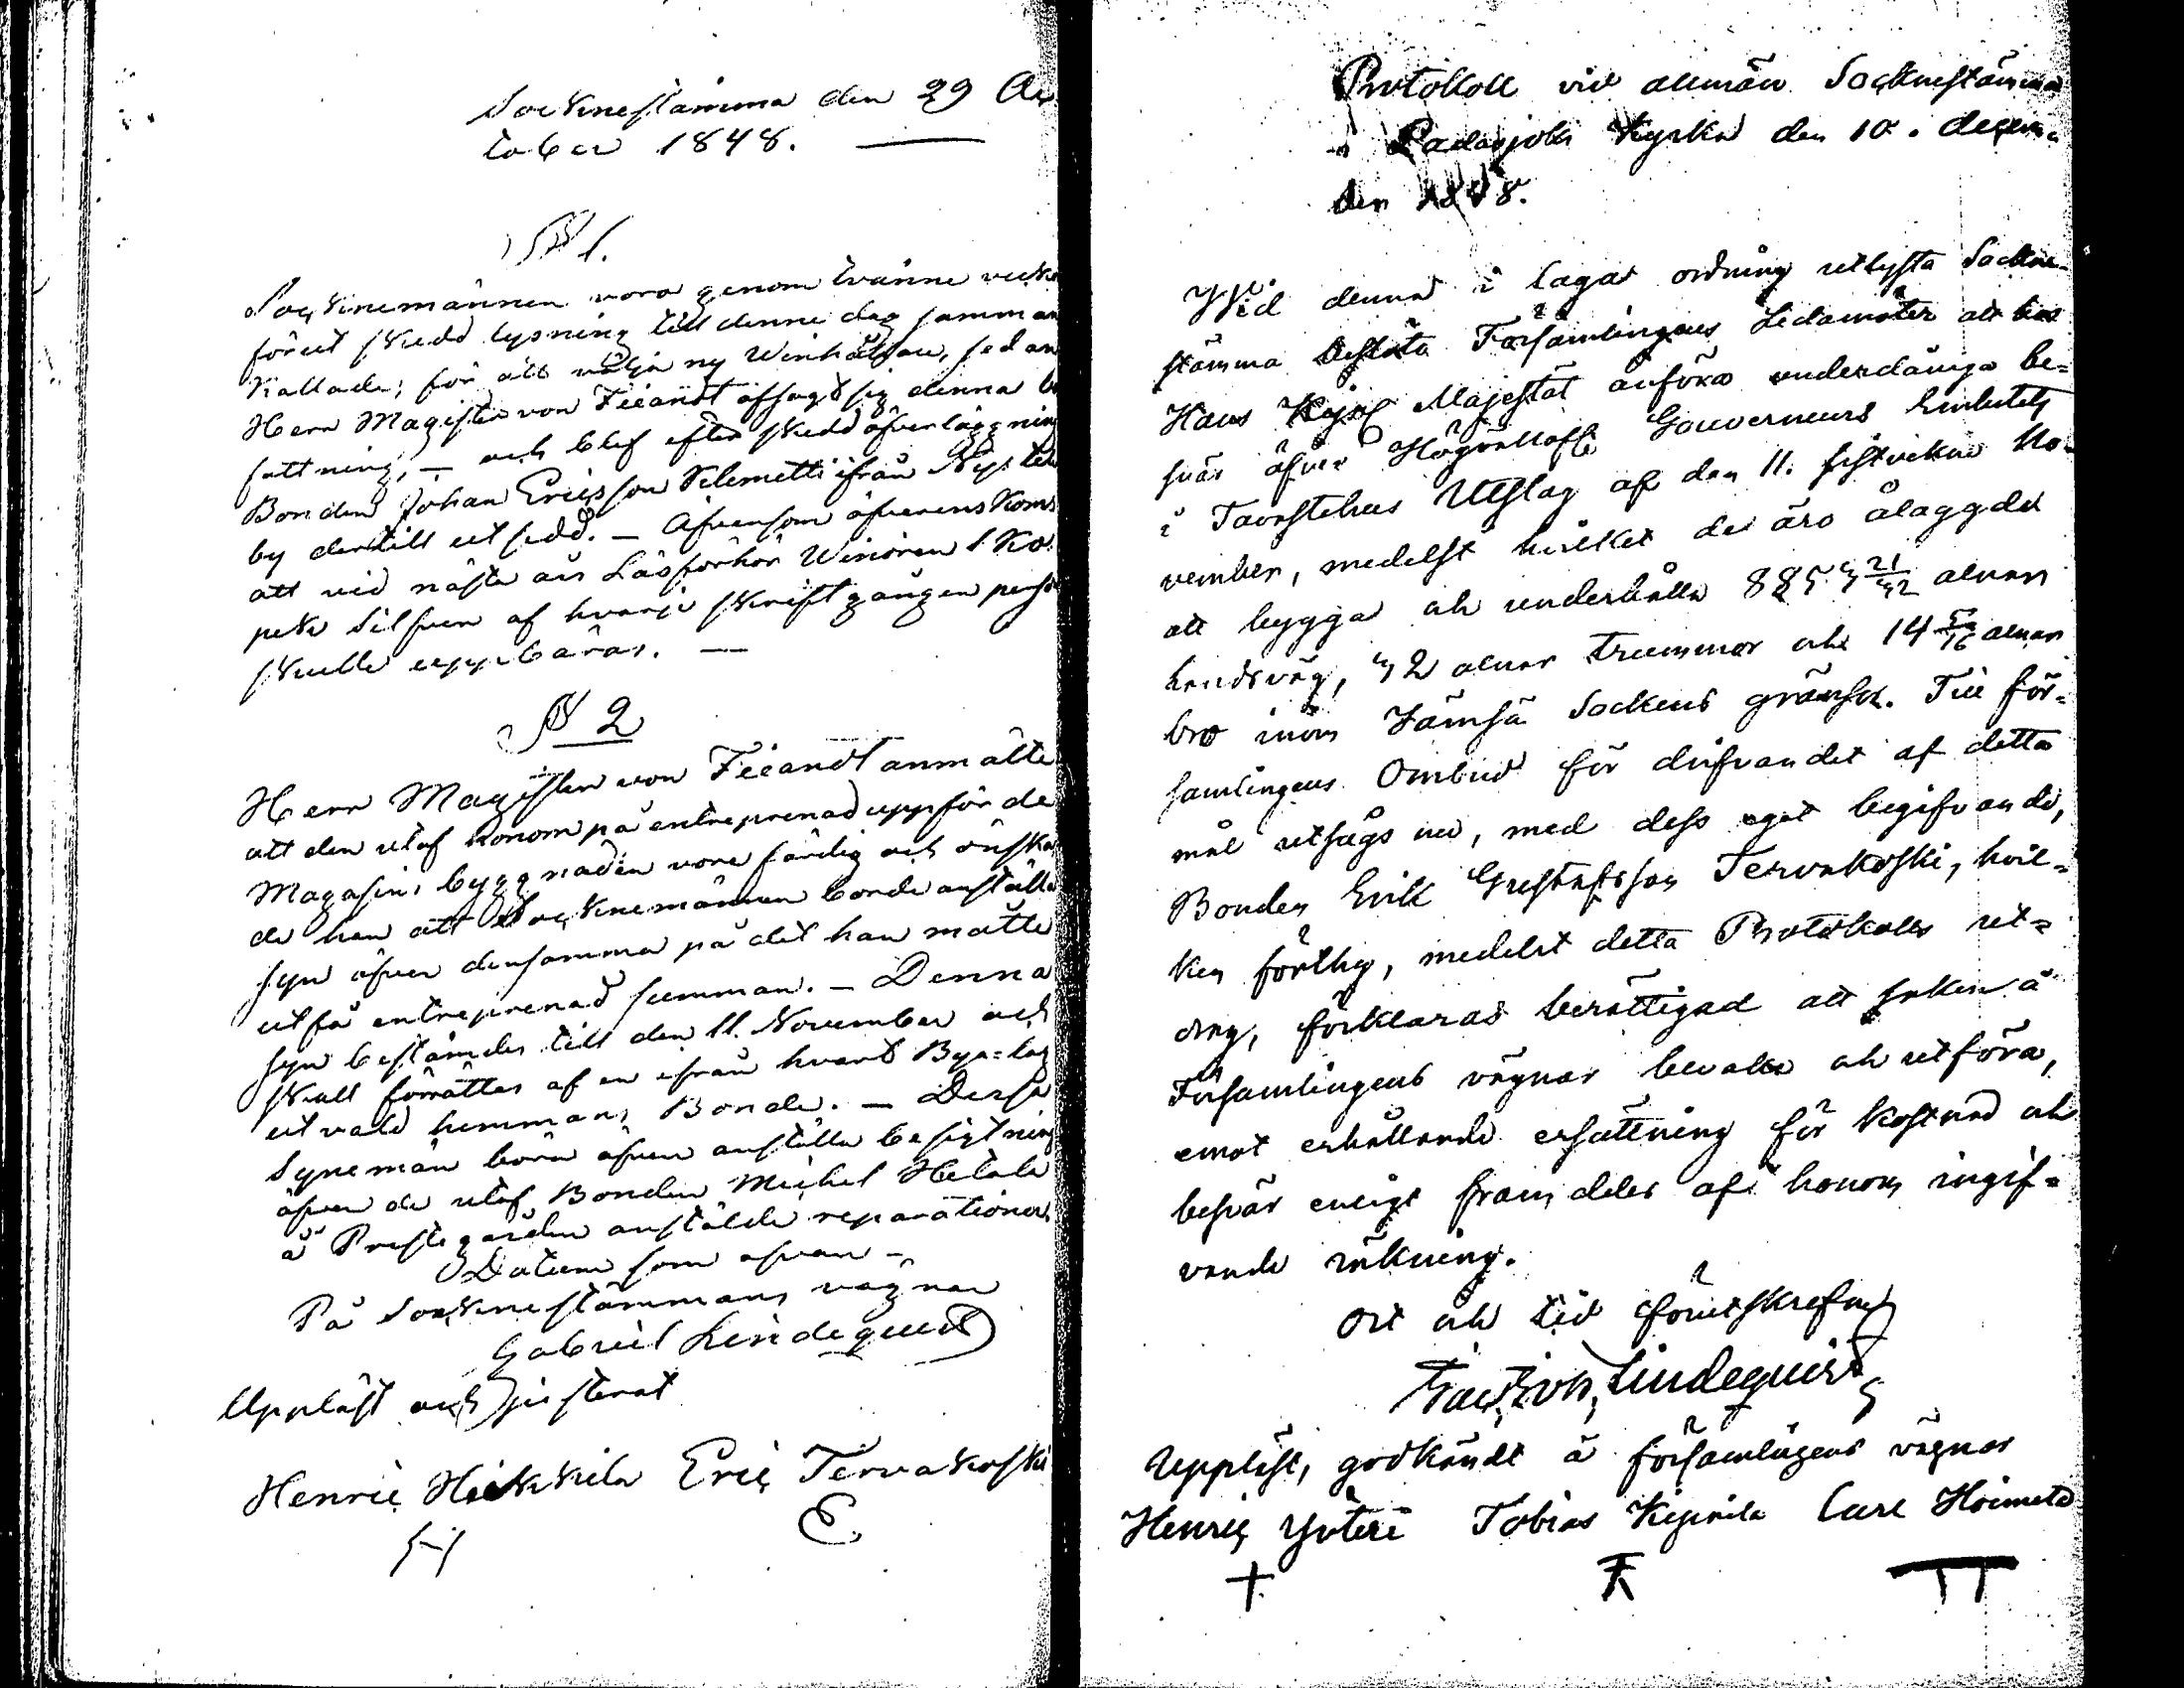 Socknestämma den 29 Oc
tober 1848.
§ 1.
Socknemännen voro genom tvänne veckor
förut skedd lysning till denne dag samman
kallade, för att välja ny Winhållare, sedan
Herr Magister von Fieandt afsagt sig denna be
fattning, – och blef efter skedd öfverläggning
Bonden Johan Ericsson Klemetti ifrån Nys
by dertill utsedd. – Äfvensom öfverenskoms
att vid nästa års Läsförhör Winören 1 Ko
pek Silfver af hvarje skriftgången perso
skulle uppbäras. —
§ 2
Herr Magister von Fieandt anmälte
att den utaf honom på entreprenad uppförde
Magasins byggnaden vore färdig och önska
de han att Sockenemännen borde anställa
syn öfver densamma på det han måtte
utfå entreprenad summan. – Denna
syn bestämdes till den 11. November och
skall förrättas af en ifrån hvart Bya=lag
utvald hemmans Bonde. – Desse
Synemän böra äfven anställa besigtning
öfver de utaf Bonden Michel Hetala
å Prestegården anstälde reparationer
Datum som ofvan –
På Sockenestämmans vägnar
Gabriel Lindequist
Uppläst och justerat
Henric Heikkilä Eric Tervakoski
H E
Protokoll vid allmän Sockenstämma
i Padasjoki Kyrka den 10. decem-
ber 1848.
Wid denna i lagas ordning utlysta Sockne-
stämma beslöto Församlingens Ledamöter att hos
Hans Kejsl Majestät anföra underdåniga be-
svär öfver Gouverneurs Embetets
i Tavastehus Utslag af den 11. sistvikne No-
vember, medelst hvilket de äro ålaggde
att bygga och underhålla alnar
landsväg, 42 alnar trummor och 14 5/16 alnar
bro inom Jämsä Sockens gränser. Till för-
samlingens Ombud för drifvandet af detta
mål utsågs nu, med dess eget begifvande,
Bonden Erik Gustafsson Tervakoski, hvil-
ken förthy, medelst detta Protokolls ut-
drag, förklaras berättigad att saken å
Församlingens vägnar bevaka och utföra,
emot erhållande ersättning för kostnad och
besvär enligt framdeles af honom ingif-
vande räkning.
Ort och tid förutskrefne
Lindequist
Uppläst, godkändt å församlingens vägnar
Henric Tobias Carl